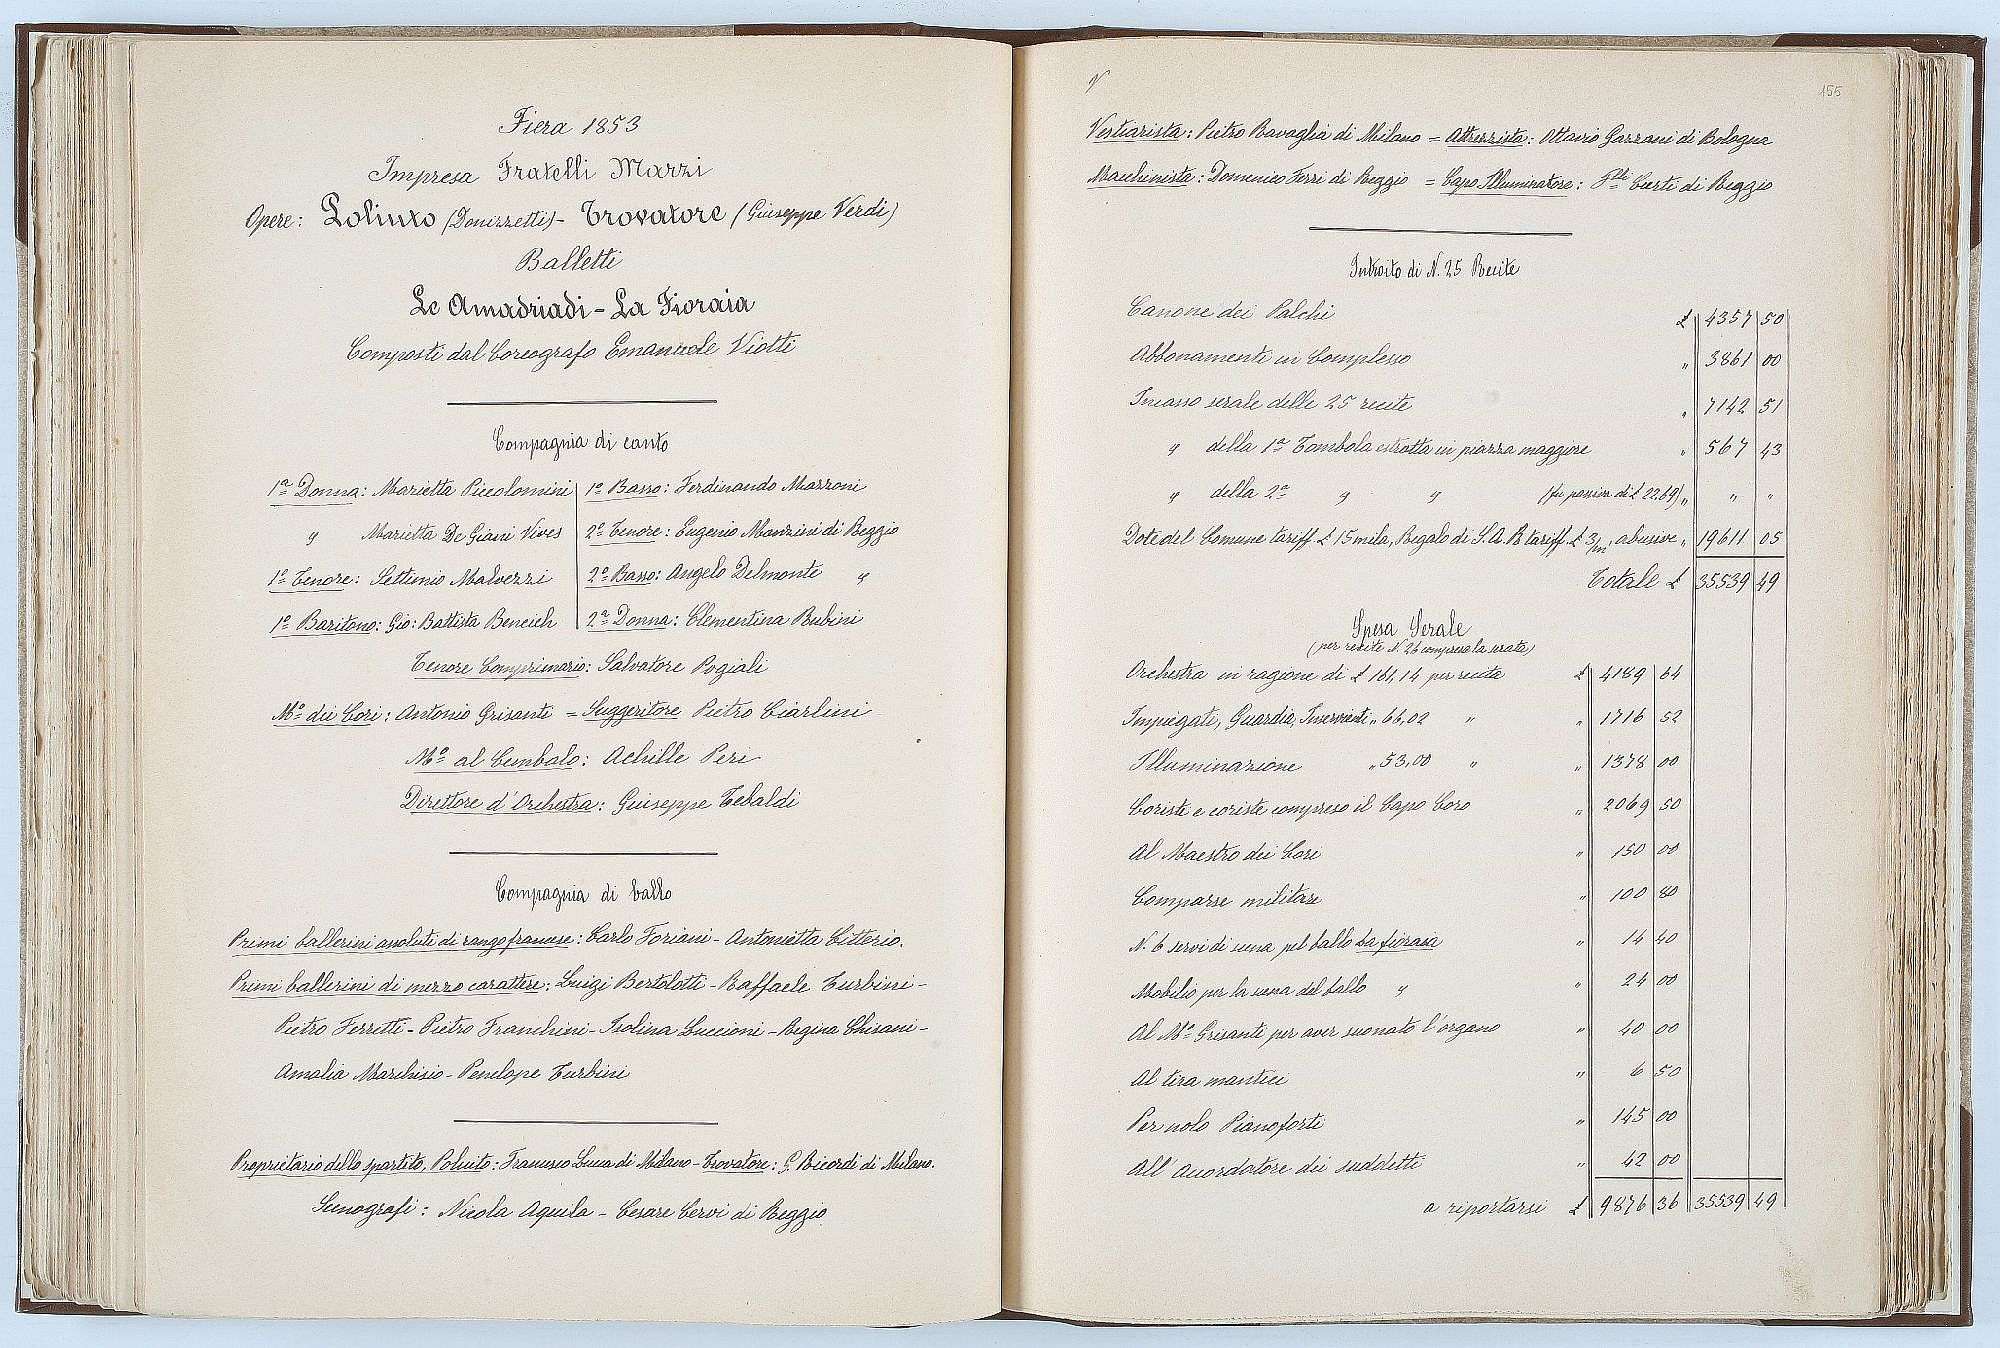 Fiera 1853
Impresa Fratelli Marzi
Opere: Poliuto (Donizzetti) - Trovatore (Giuseppe Verdi)
Balletti
Le Amadriadi - La Fioraia
Composti dal Coreografo Emanuele Viotti
Compagnia di canto
1ª Donna: Marietta Piccolomini
" Marietta De Giani Vives
1º Tenore: Settimio Malvezzi
1º Baritono: Gio: Battista Bencich
1º Basso: Ferdinando Mazzoni
2º Tenore: Eugenio Manzini di Reggio
2º Basso: Angelo Delmonte "
2ª Donna: Clementina Rubini
Tenore Comprimario: Salvatore Pogiali
Mº dei Cori: Antonio Grisanti = Suggeritore Pietro Ciarlini
Mº al Cembalo: Achille Peri
Direttore d'Orchestra: Giuseppe Tebaldi
Compagnia di ballo
Primi ballerini assoluti di rango francese: Carlo Foriani - Antonietta Citterio.
Primi ballerini di mezzo carattere: Luigi Bertolotti - Raffaele Turbini -
Pietro Ferretti - Pietro Franchini - Isolina Luccioni - Regina Chisani -
Amalia Marchisio - Penelope Turbini
Proprietario dello spartito, Poliuto: Francesco Lucca di Milano - Trovatore: G. Ricordi di Milano.
Scenografi: Nicola Aquila - Cesare Cervi di Reggio
155
Vestiarista: Pietro Ravaglia di Milano = Attrezzista: Ottavio Gazzani di Bologna
Macchinista: Domenico Ferri di Reggio = Capo Illuminatore: Curti di Reggio
Introito di N. 25 Recite
Canone dei Palchi £ 4357 50
Abbonamenti in Complesso " 3861 00
Incasso serale delle 25 recite " 7142 51
" della 1ª Tombola estratta in piazza maggiore " 567 43
" della 2ª " " (fu passiva di £ 22.69) " " "
Dote del Comune tariff. £ 15 mila, Regalo di S.A.R. tariff. £ 3/m, abusive " 19611 05
Totale £ 35539 49
Spesa Serale
(per recite N. 26 compresa la serata)
Orchestra in ragione di £ 161,14 per recita £ 4189 64
Impiegati, Guardia, Inservienti " 66,02 " " 1716 52
Illuminazione " 53,00 " " 1378 00
Coristi e coriste compreso il Capo Coro " 2069 50
Al Maestro dei Cori " 150 00
Comparse militari " 100 80
N. 6 servi di scena pel ballo La fioraia " 14 40
Mobilio per la scena del ballo " " 24 00
Al Mº Grisanti per aver suonato l'organo " 40 00
Al tira mantici " 6 50
Per nolo Pianoforte " 145 00
All'accordatore dei suddetti " 42 00
a riportarsi £ 9876 36 35539 49